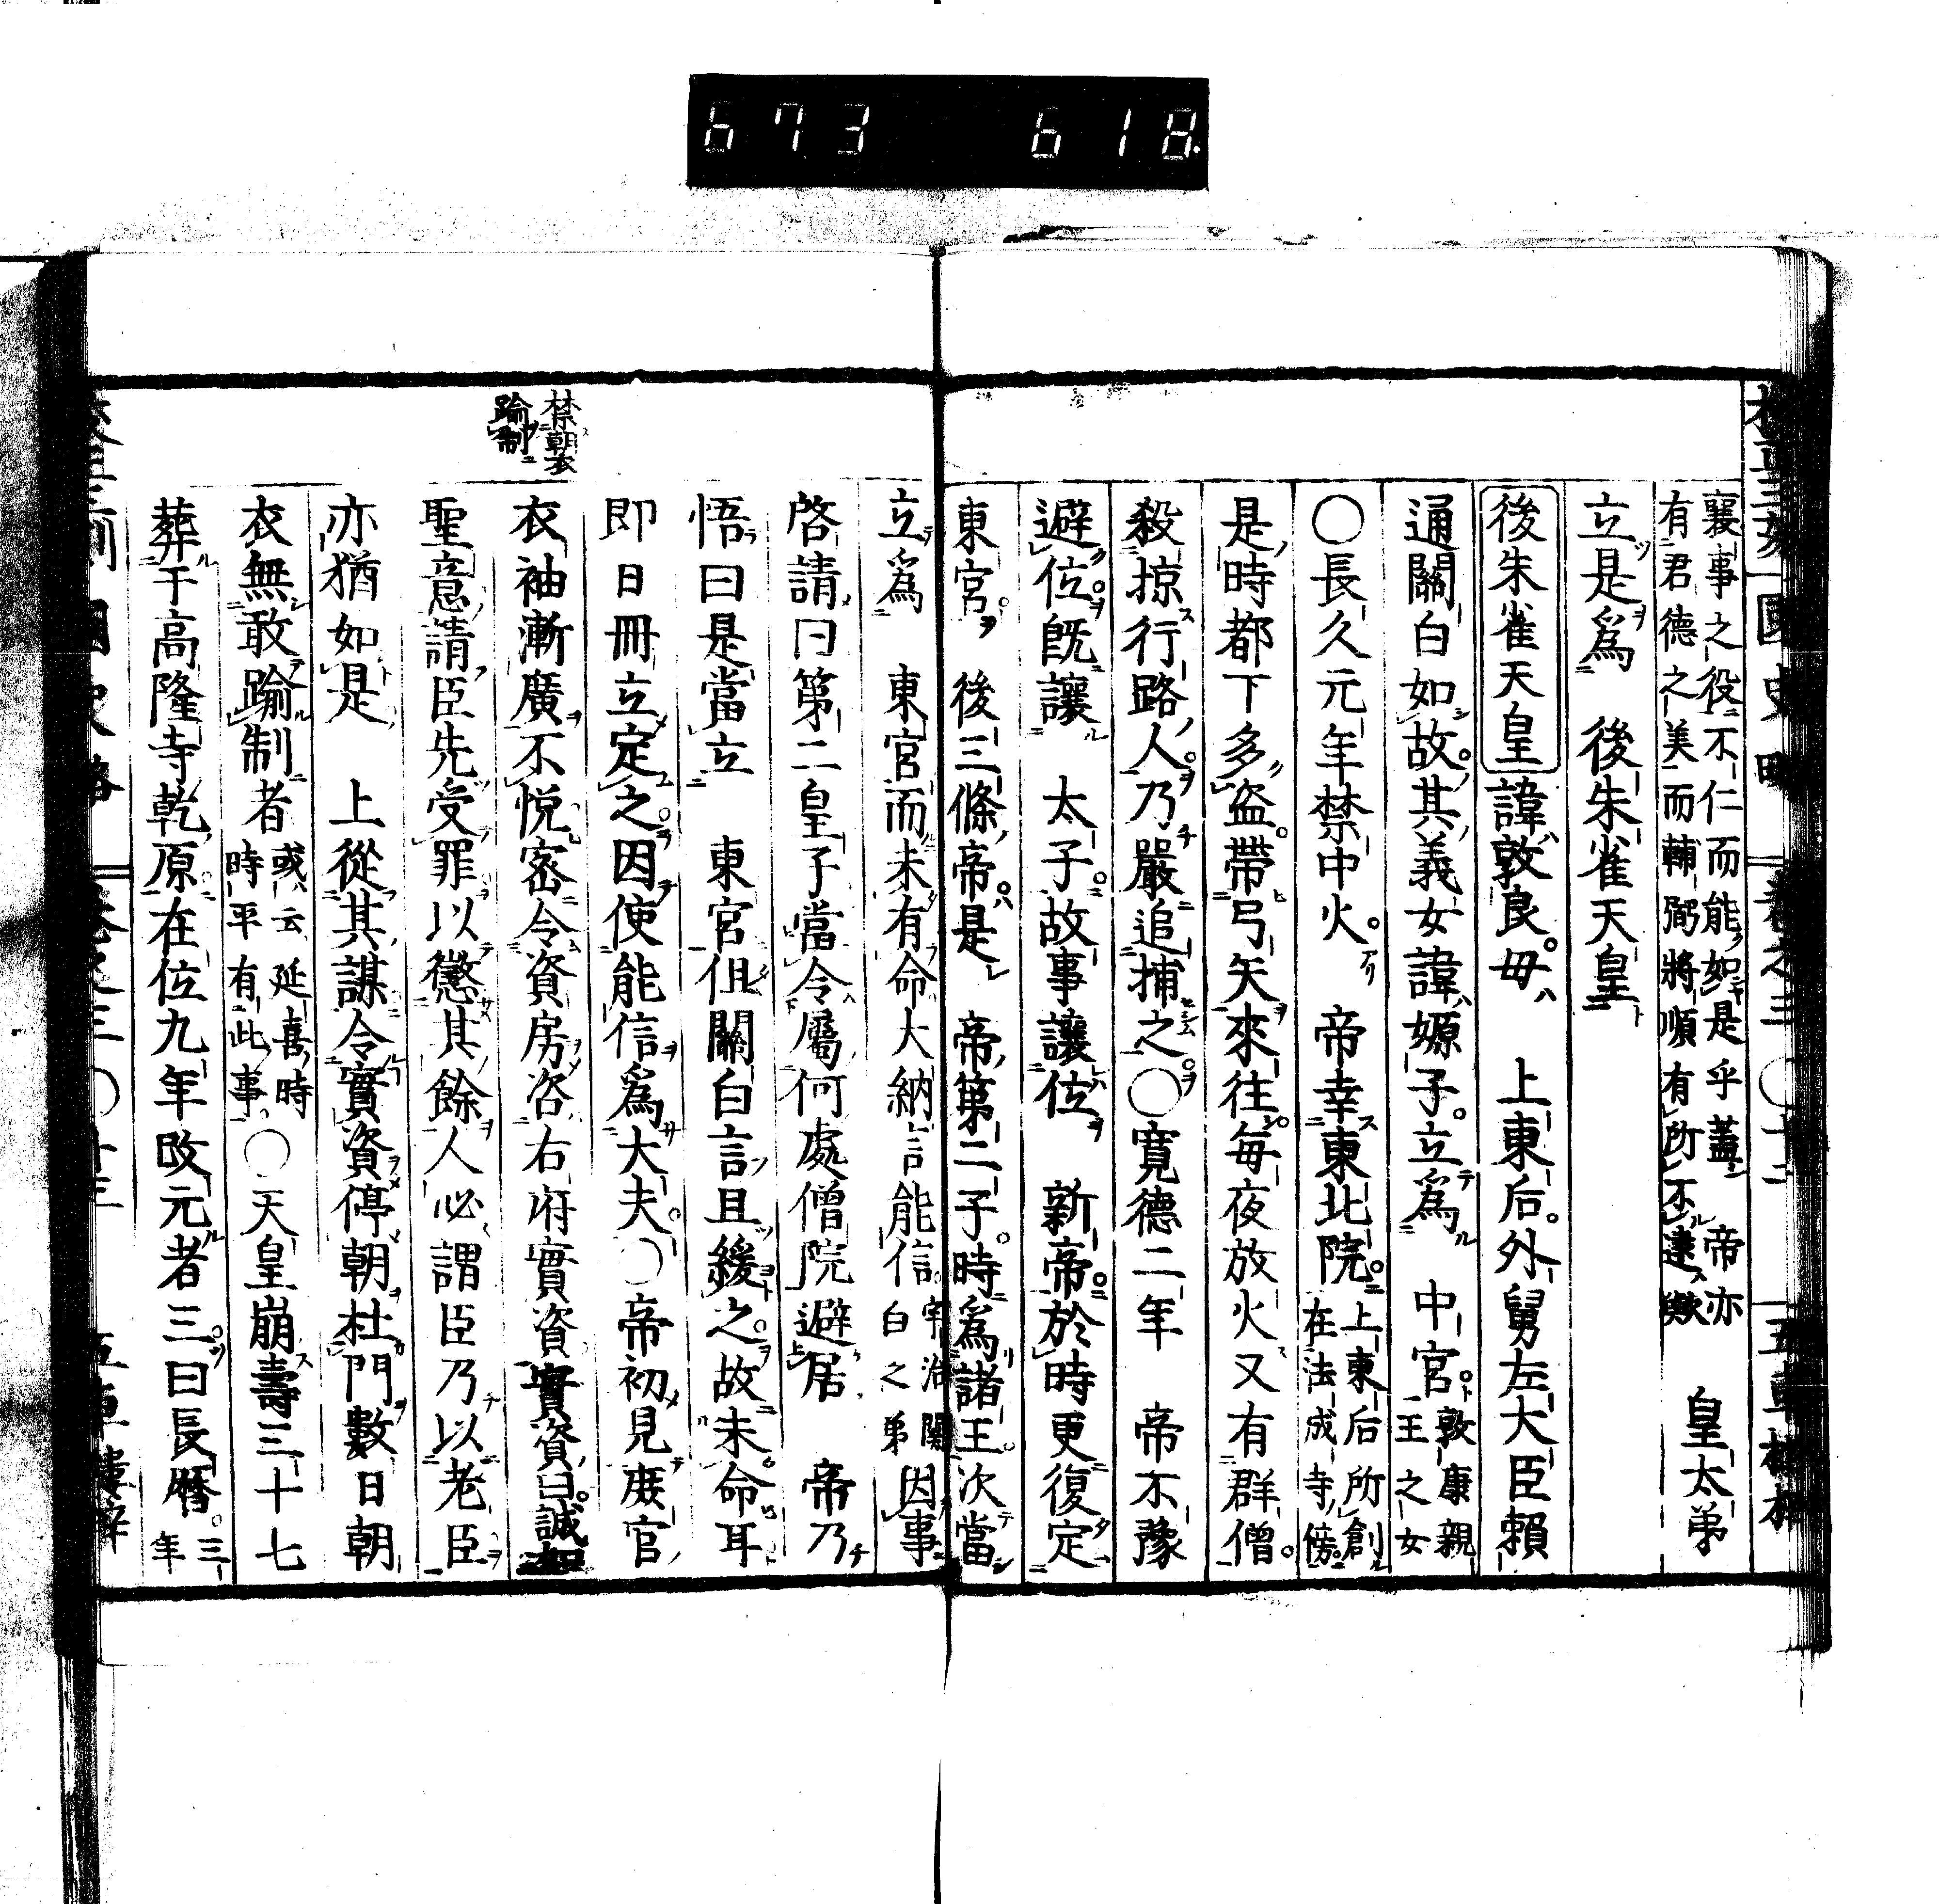 673 618
襄事之役不仁而能如是乎蓋 帝亦
有君德之美而輔弼將順有所不逮歟 皇太弟
立是爲 後朱雀天皇
後朱雀天皇諱敦良母 上東后外舅左大臣賴
通關白如故其義女諱嫄子立爲 中宮敦康親
王之女
○長久元年禁中火 帝幸東北院上東后所創
在法成寺傍
是時都下多盜帶弓矢來往每夜放火又有群僧
殺掠行路人乃嚴追捕之○寬德二年 帝不豫
避位既讓 太子故事讓位 新帝於時更復定
東宮後三條帝是 帝第二子時爲諸王次當
立爲 東宮而未有命大納言能信宇治關
白之弟因事
啓請曰第二皇子當令屬何處僧院避居 帝乃
悟曰是當立 東宮但關白言且緩之故未命耳
即日冊立定之因使能信爲大夫○帝初見庶官
禁朝衣
踰制
衣袖漸廣不悅密令資房咨右府實資實資曰誠如
聖意請臣先受罪以懲其餘人必謂臣乃以老臣
亦猶如是 上從其謀令實資停朝杜門數日朝
衣無敢踰制者或云延喜時
時平有此事○天皇崩壽三十七
葬于高隆寺乾原在位九年改元者三曰長曆三
年